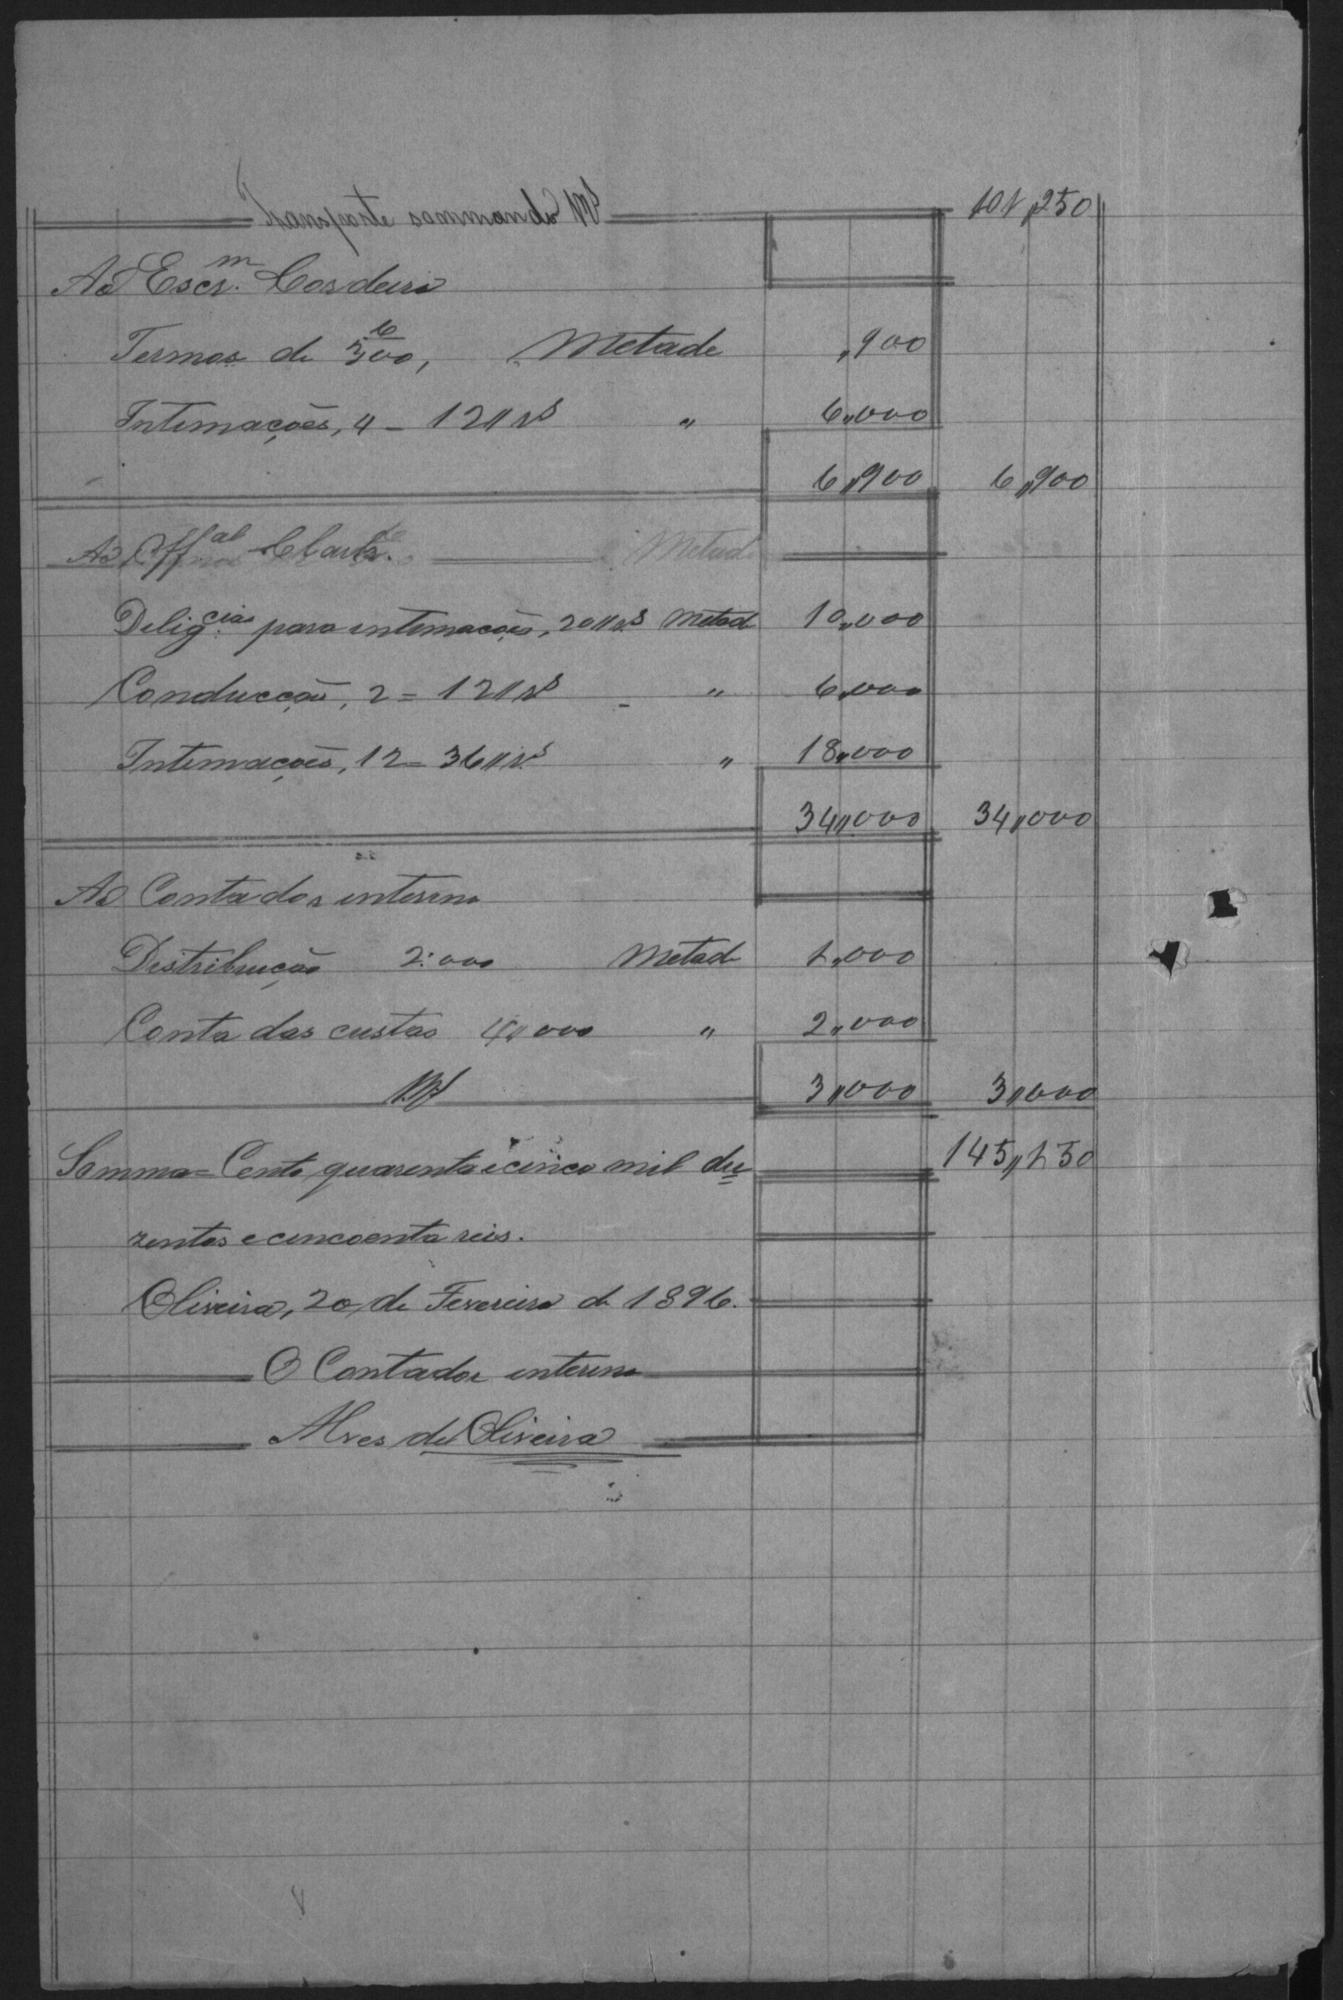 Transporte sommando Rs 101,,250
Ao Escr.m Cordeiro
Termos de 6/300, Metade ,900
Intimações, 4 – 12,,rs " 6,,000
6,,900 6,,900
Ao Offal Metade
Delig.cias para intimações, 20,,rs Metade 10,,000
Conducção, 2 = 12,,rs " 6,,000
Intimações, 12 = 36,,rs " 18,,000
34,,000 34,,000
Ao Contador interino
Distribuição 2:000 Metade 1,,000
Conta das custas 4,,000 " 2,,000
Rs 3,,000 3,,000
Somma = Cento quarenta e cinco mil du 145,,150
zentos e cincoenta reis.
Oliveira, 20, de Fevereiro de 1896.
O Contador interino
Alves de Oliveira